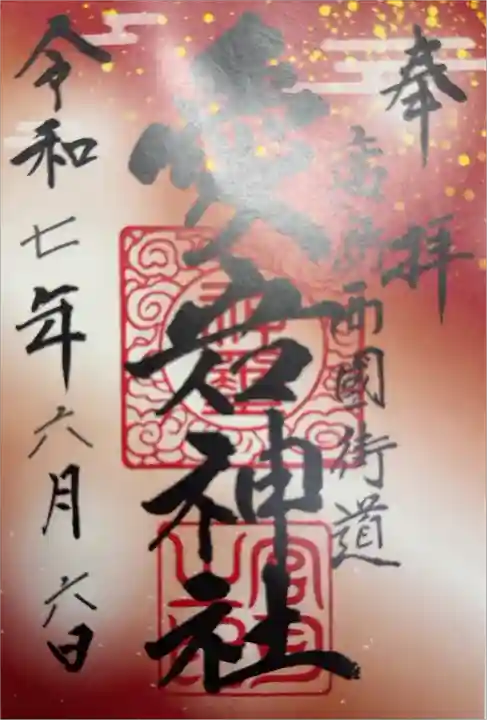 奉拝
西國街道
愛宕神社
令和七年六月六日